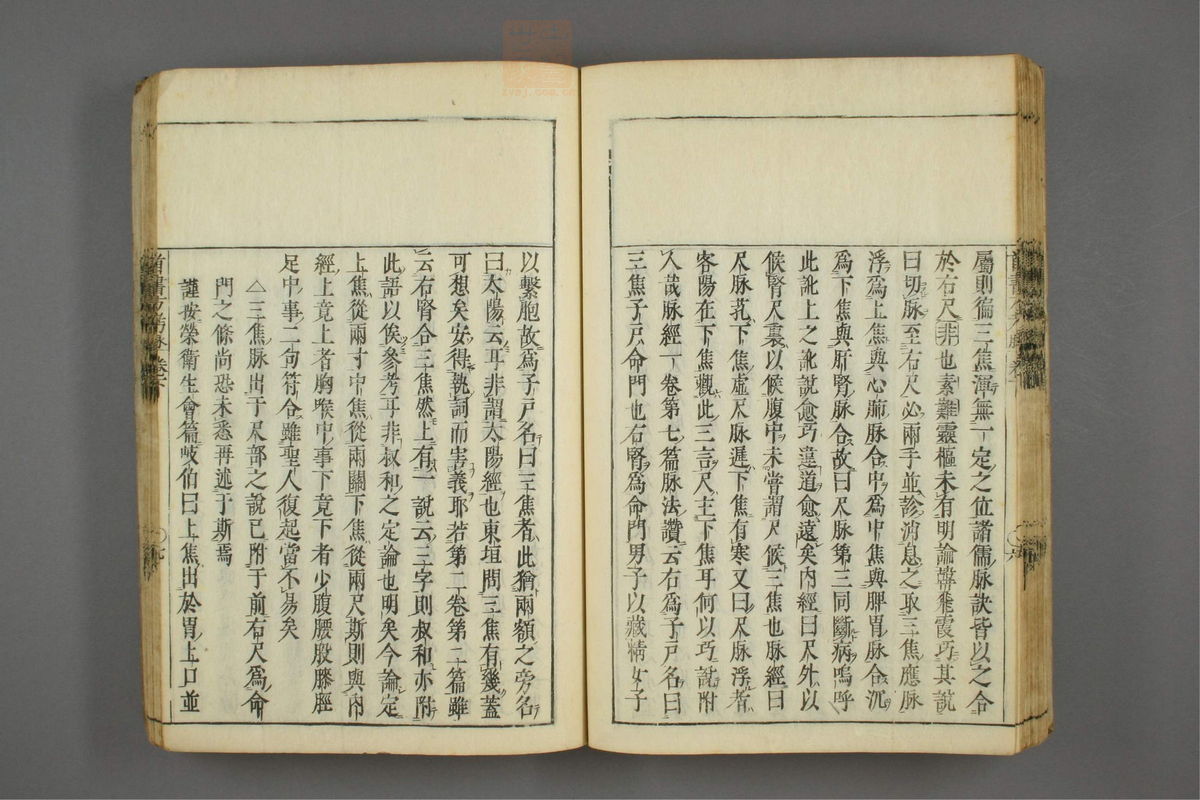 屬則徧三焦渾無一定之位諸儒脉訣皆以之合
於右尺非也素難靈樞未有明論韓飛霞巧其說
曰切脉至右尺必兩手並診消息之取三焦應脉
浮爲上焦與心肺脉合中爲中焦與脾胃脉合沉
爲下焦與肝腎脉合故曰尺脉第三同斷病嗚呼
此訛上之訛說愈巧違道愈遠矣內經曰尺外以
候腎尺裏以候腹中未嘗謂尺候三焦也脉經曰
尺脉芤下焦虛尺脉遲下焦有寒又曰尺脉浮者
客陽在下焦觀此三言尺主下焦耳何以巧說附
入哉脉經一卷第七篇脉法讚云右爲子戶名曰
三焦子戶命門也右腎爲命門男子以藏精女子
以繫胞故爲子戶名曰三焦者此猶兩額之旁名
曰太陽云耳非謂太陽經也東垣問三焦有幾蓋
可想矣安得執詞而害義耶若第二卷第二篇雖
云右腎合三焦然上有一說云三字則叔和亦附
此語以俟參考耳非叔和之定論也明矣今論定
上焦從兩寸中焦從兩關下焦從兩尺斯則與內
經上竟上者胸喉中事下竟下者少腹腰股膝脛
足中事二句符合雖聖人復起當不易矣
△三焦脉出于尺部之說已附于前右尺爲命
門之條尚恐未悉再述于斯焉
謹按榮衛生會篇岐伯曰上焦出於胃上口並